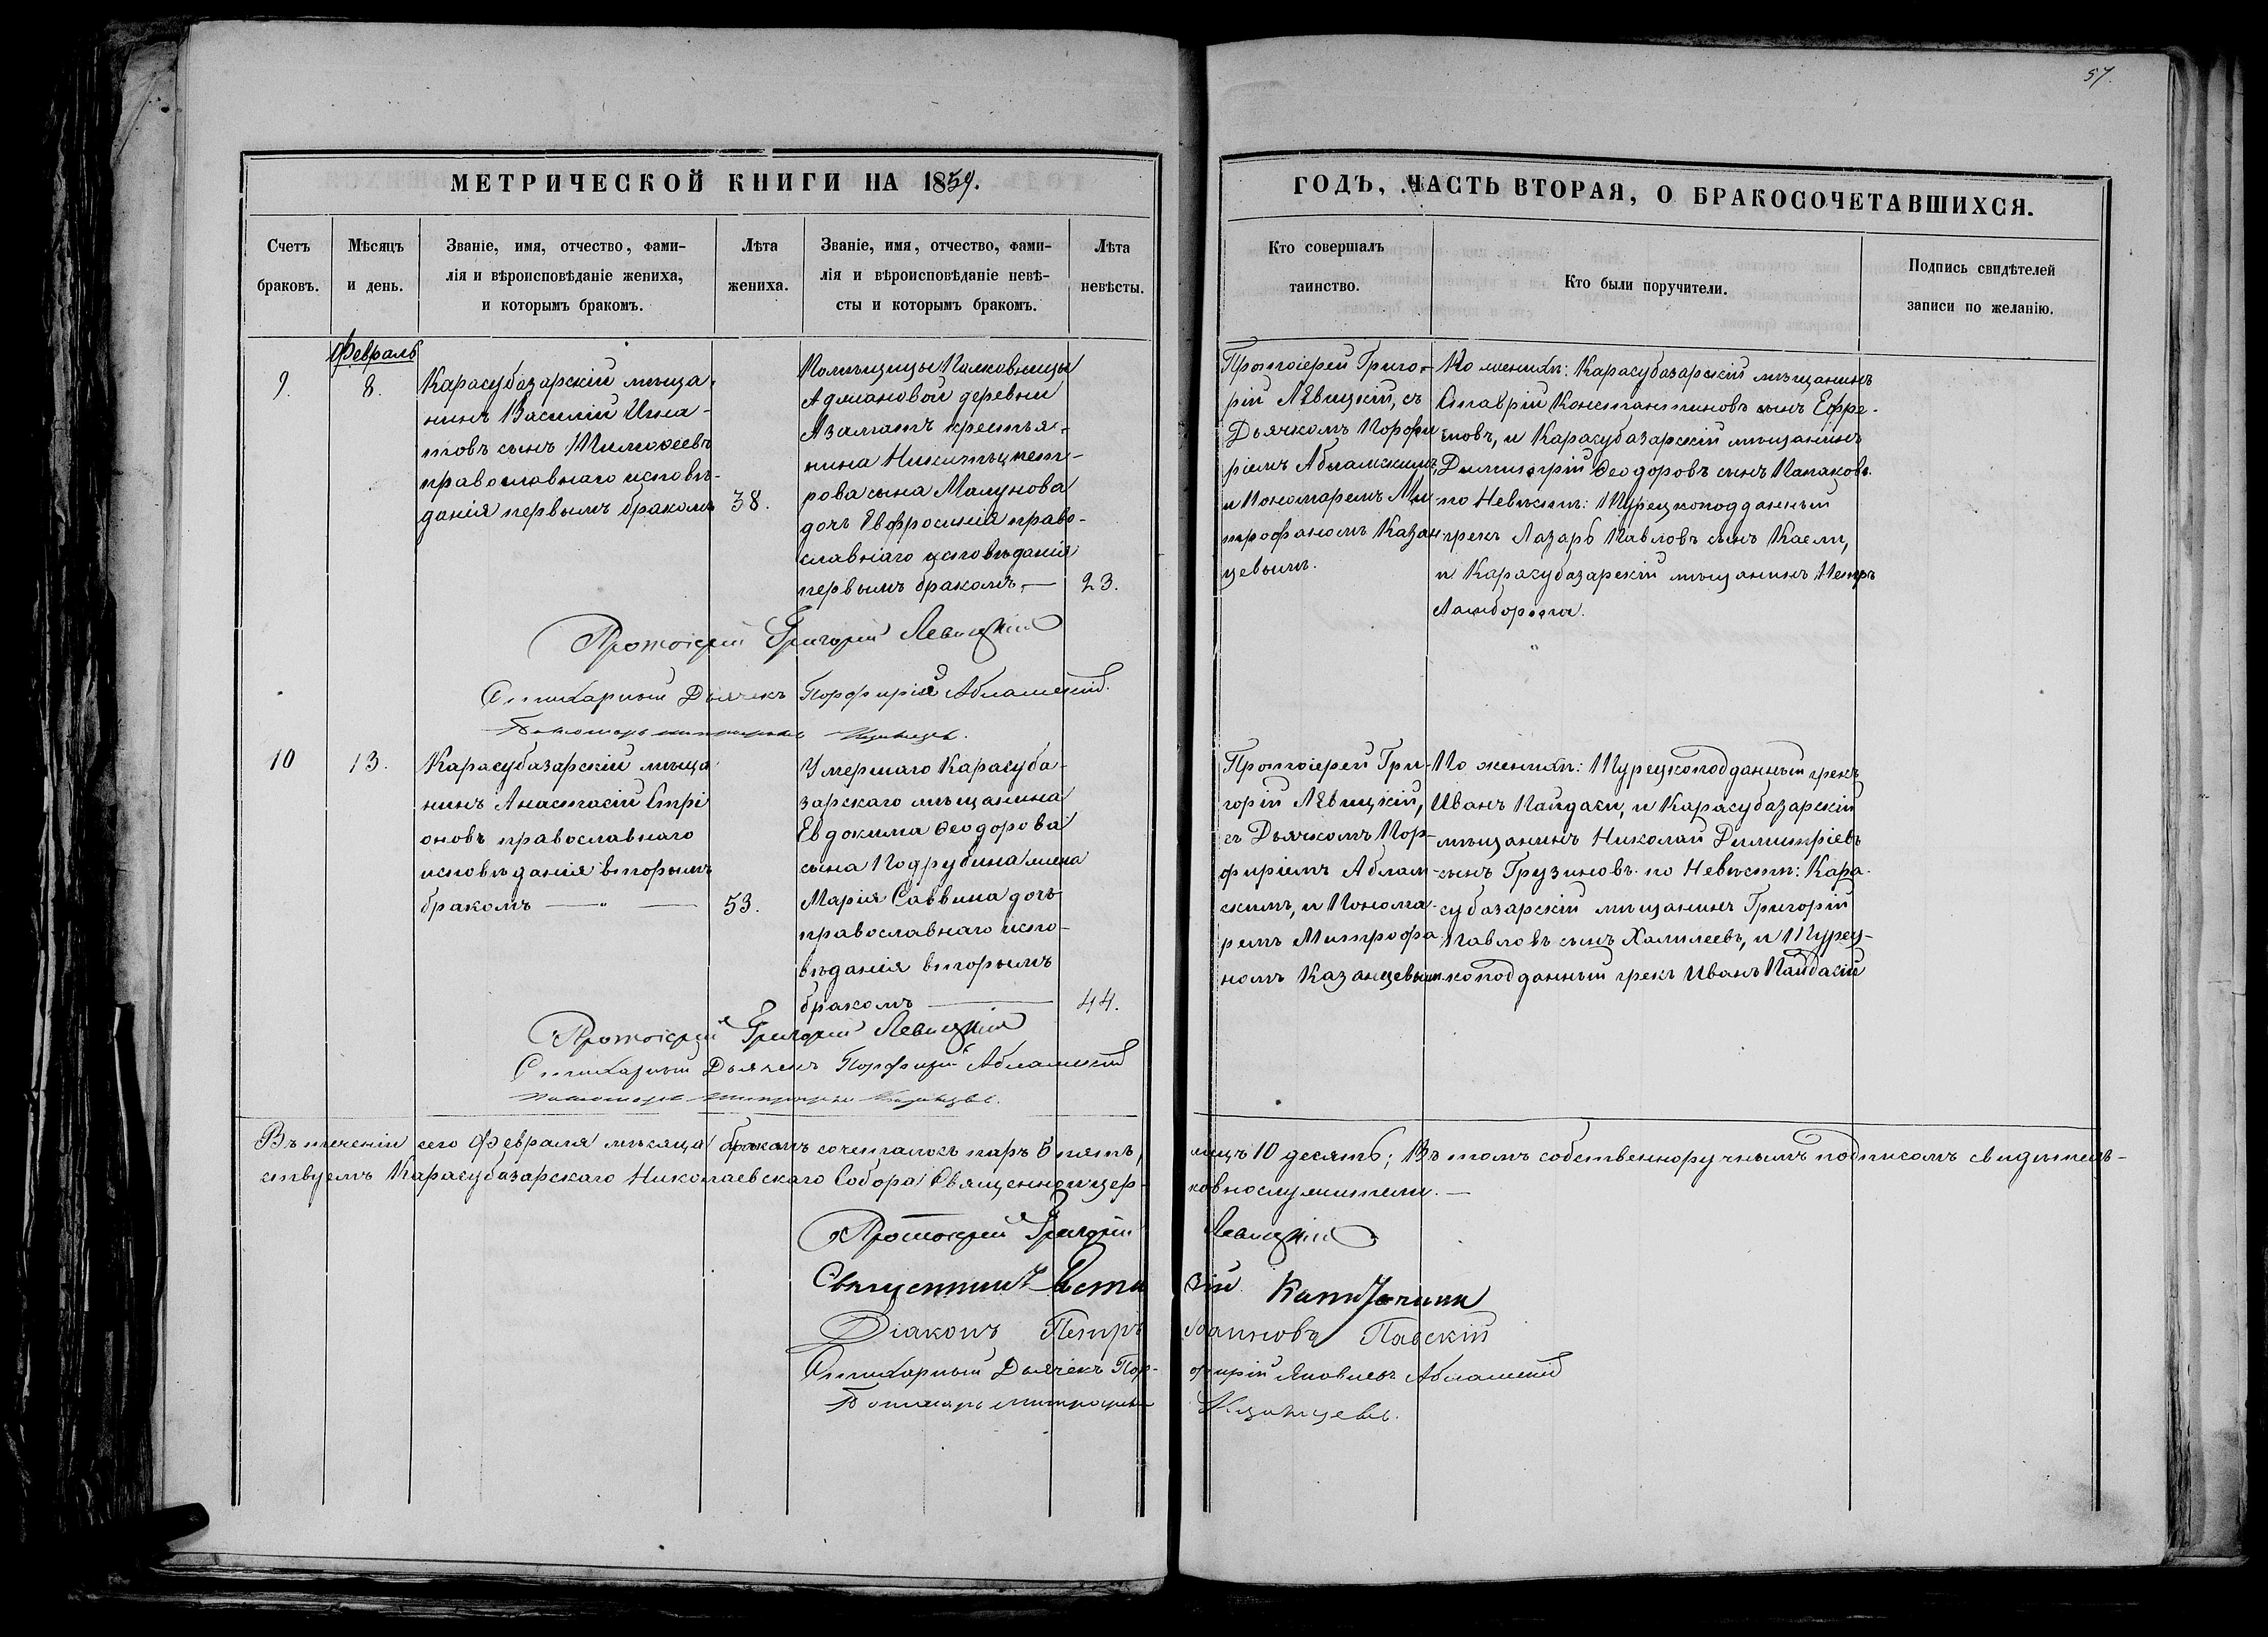 57.
МЕТРИЧЕСКОЙ КНИГИ НА 1859.
Счетъ браковъ.
Мѣсяцъ и день.
Званіе, имя, отчество, фами-
лія и вѣроисповѣданіе жениха,
и которымъ бракомъ.
Лѣта жениха.
Званіе, имя, отчество, фами-
лія и вѣроисповѣданіе невѣ-
сты и которымъ бракомъ.
Лѣта невѣсты.
ГОДЪ, ЧАСТЬ ВТОРАЯ, О БРАКОСОЧЕТАВШИХСЯ.
Кто совершалъ
таинство.
Кто были поручители.
Подпись свидѣтелей
записи по желанію.
Февраль
9.
8.
Карасубазарскій мѣща-
нинъ Василій Игна-
товъ сынъ Тимоѳеевъ
православнаго исповѣ-
данія первымъ бракомъ
38.
Помѣщицы Полковницы
Адмановой деревни
Азаматъ крестья-
нина Никиты Пет-
рова сына Малунова
дочь Евфросинія право-
славнаго исповѣданія
первымъ бракомъ. —
23.
Протоіерей Григо-
рій Лѣвицкій, съ
Дьячкомъ Порфи-
ріемъ Абламскимъ,
и Пономаремъ Ми-
трофаномъ Казан-
цевымъ.
По женихѣ: Карасубазарскій мѣщанинъ
Ставрій Константиновъ сынъ Ефре-
мовъ, и Карасубазарскій мѣщанинъ
Димитрій Ѳеодоровъ сынъ Папаковъ.
по Невѣстѣ: Турецкоподданный
грекъ Лазарь Павловъ сынъ Каели,
и Карасубазарскій мѣщанинъ Петръ
Протоіерей Григорій Левицкій
Стихарный Дьячекъ Порфирій Абламскій.
Пономарь Митрофанъ Казанцевъ.
10
13.
Карасубазарскій мѣща
нинъ Анастасій Стрі
оновъ православнаго
исповѣданія вторымъ
бракомъ — " —
53.
Умершаго Карасуба-
зарскаго мѣщанина
Евдокима Ѳеодорова
сына Подрубина жена
Марія Саввина дочь
православнаго испо-
вѣданія вторымъ
бракомъ —
44.
Протоіерей Гри-
горій Лѣвицкій,
съ Дьячкомъ Пор-
фиріемъ Аблам-
скимъ, и Понома-
ремъ Митрофа
номъ Казанцевымъ
По женихѣ: Турецкоподданный грекъ
Иванъ Пандаки, и Карасубазарскій
мѣщанинъ Николай Димитріевъ
сынъ Грузиновъ. по Невѣстѣ: Кара-
субазарскій мѣщанинъ Григорій
Павловъ сынъ Халилеевъ, и Турец-
коподданный грекъ Иванъ Пайдакій
Протоіерей Григорій Левицкій
Стихарный Дьячекъ Порфирій Абламскій
Пономарь Митрофанъ Казанцевъ.
Въ теченіи сего Февраля мѣсяца бракомъ сочеталось паръ 5 пять, лицъ 10 десять; Въ томъ собственноручнымъ подписомъ свидѣтель-
ствуемъ Карасубазарскаго Николаевскаго Собора Священно и цер- ковнослужители. —
Протоіерей Григорій Левицкій
Діаконъ Петръ Іоанновъ Павскій
Стихарный Дьячекъ Пор- фирій Яковлевъ Абламскій
Пономарь Митрофанъ Казанцевъ.